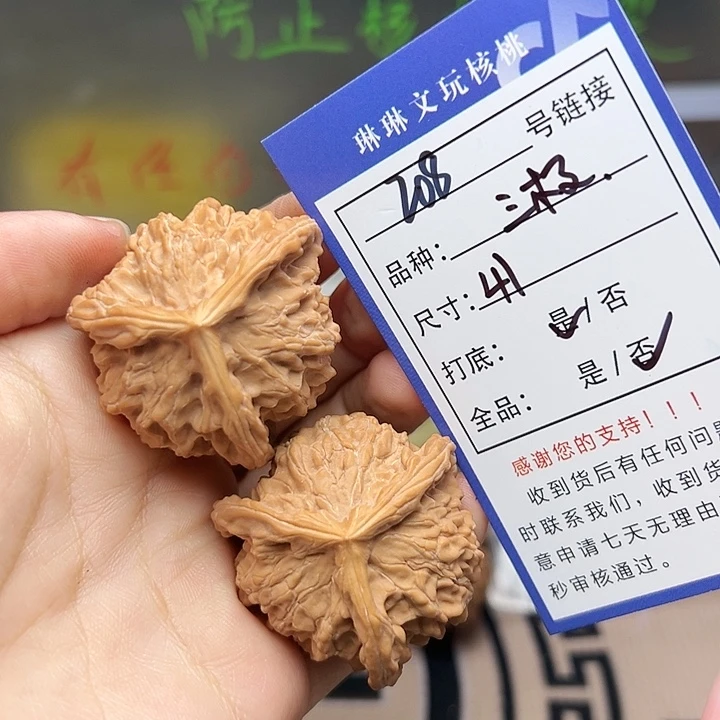 防止
琳琳文玩核桃
208 号链接
品种：三棱.
尺寸：41
打底：是/否
全品：是/否
感谢您的支持！！！
收到货后有任何问
时联系我们，收到货
意申请七天无理由
秒审核通过。